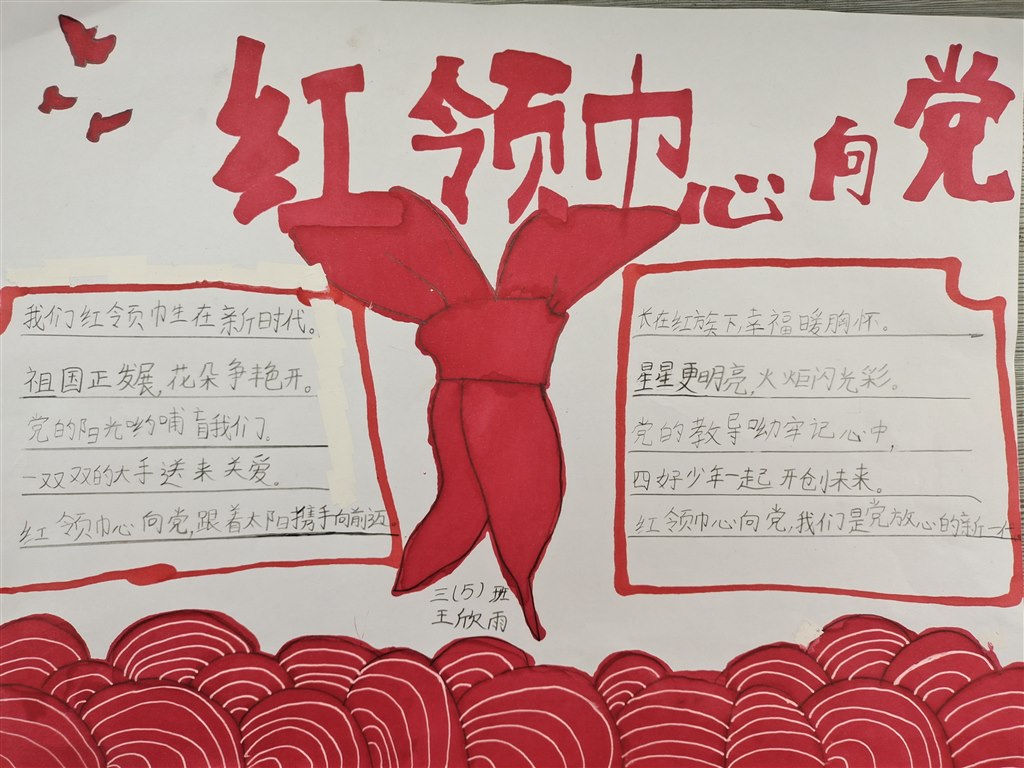 红领巾心向党
我们红领巾生在新时代。
祖国正发展,花朵争艳开。
党的阳光哟哺育我们。
一双双的大手送来关爱。
红领巾心向党,跟着太阳携手向前迈。
长在红旗下,幸福暖胸怀。
星星更明亮,火炬闪光彩。
党的教导呦牢记心中,
四好少年一起开创未来。
红领巾心向党,我们是党放心的新一代
三(5)班
王欣雨